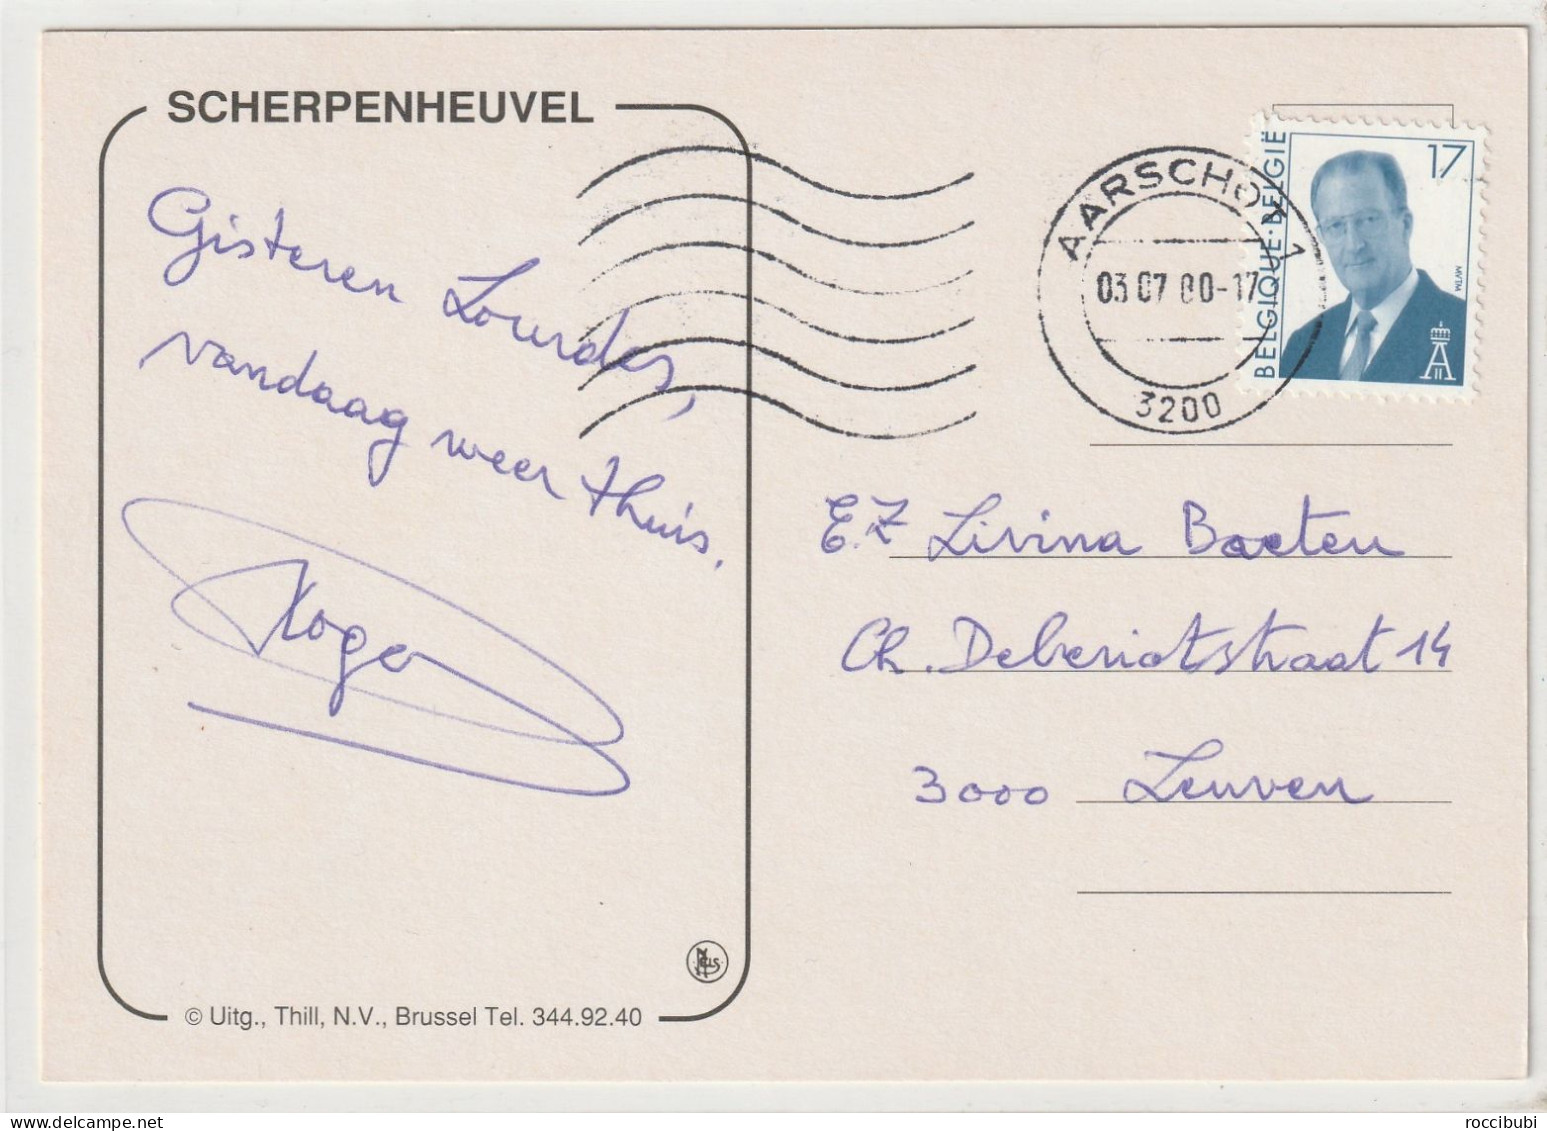 SCHERPENHEUVEL
Gisteren Lourdes,
vandaag weer thuis.
Roger
© Uitg., Thill, N.V., Brussel Tel. 344.92.40
AARSCHOT 1
03 07 00-17
3200
BELGIQUE·BELGIË
17
MVTM
E.Z Livina Baeten
Ch. Deberiotstraat 14
3000 Leuven
roccibubi